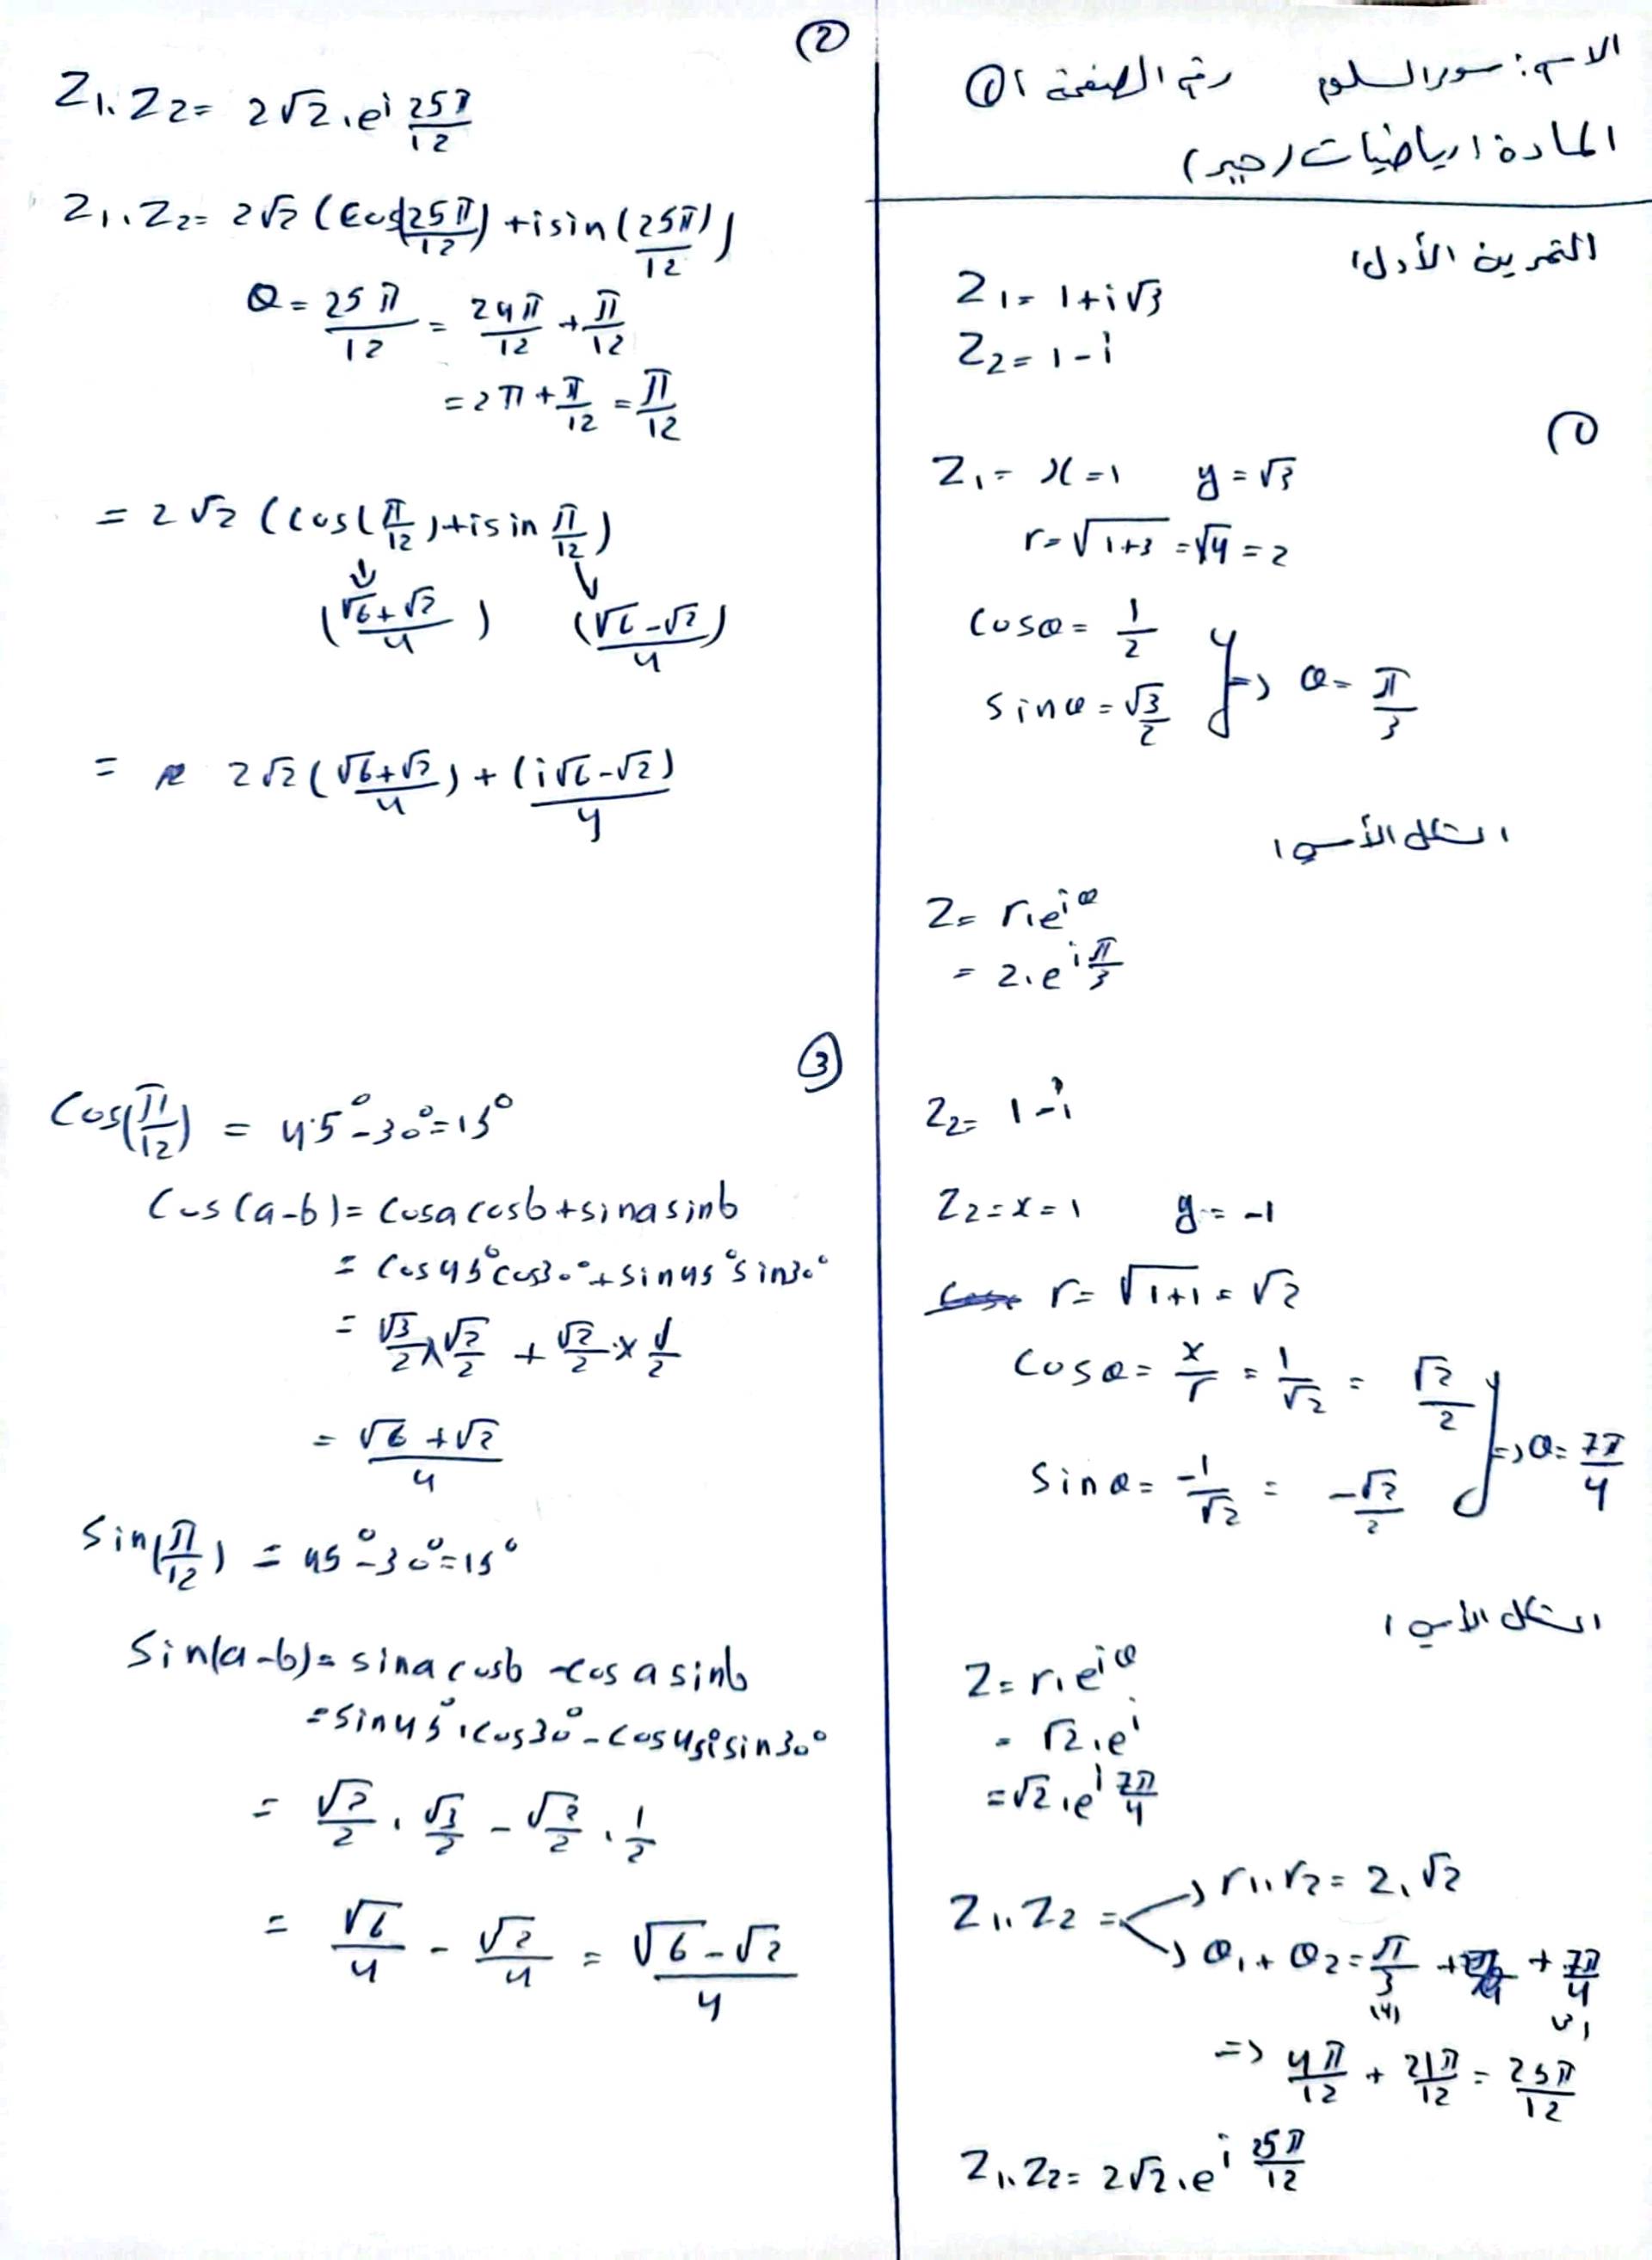 الاسم: سورالسلوم رقم الصفحة: ①
المادة: رياضيات (جبر)
التمرين الأول:
Z1 = 1+i√3
Z2 = 1-i
①
Z1 = x=1 y=√3
r=√1+3 =√4 = 2
cosθ= 1/2
sinθ=√3/2 } => θ= π/3
الشكل الأسي:
Z= r.e^iθ
= 2.e^i π/3
Z2= 1-i
Z2=x=1 y=-1
r= √1+1 = √2
cosθ= x/r = 1/√2 = √2/2
sinθ= -1/√2 = -√2/2 } => θ= 7π/4
الشكل الأسي:
Z= r.e^iθ
= √2.e^i
=√2.e^i 7π/4
Z1.Z2 = → r1.r2= 2.√2
→ θ1+θ2= π/3 + 7π/4
(4) (3)
=> 4π/12 + 21π/12 = 25π/12
Z1.Z2= 2√2.e^i 25π/12
②
Z1.Z2= 2√2.e^i 25π/12
Z1.Z2= 2√2 (cos(25π/12) +isin(25π/12))
θ= 25π/12 = 24π/12 + π/12
=2π+ π/12 = π/12
= 2√2 (cos(π/12)+isin π/12)
(√6+√2/4) (√6-√2/4)
= 2√2(√6+√2/4) + (i√6-√2)/4
③
Cos(π/12) = 45°-30°=15°
Cos(a-b)= cosa cosb+sinasinb
= Cos45°cos30°+sin45°sin30°
= √3/2×√2/2 + √2/2×1/2
= √6+√2/4
Sin(π/12) = 45°-30°=15°
Sin(a-b)= sina cosb -cos a sinb
=sin45°.cos30°-cos45°.sin30°
= √2/2 . √3/2 - √2/2 . 1/2
= √6/4 - √2/4 = √6-√2/4